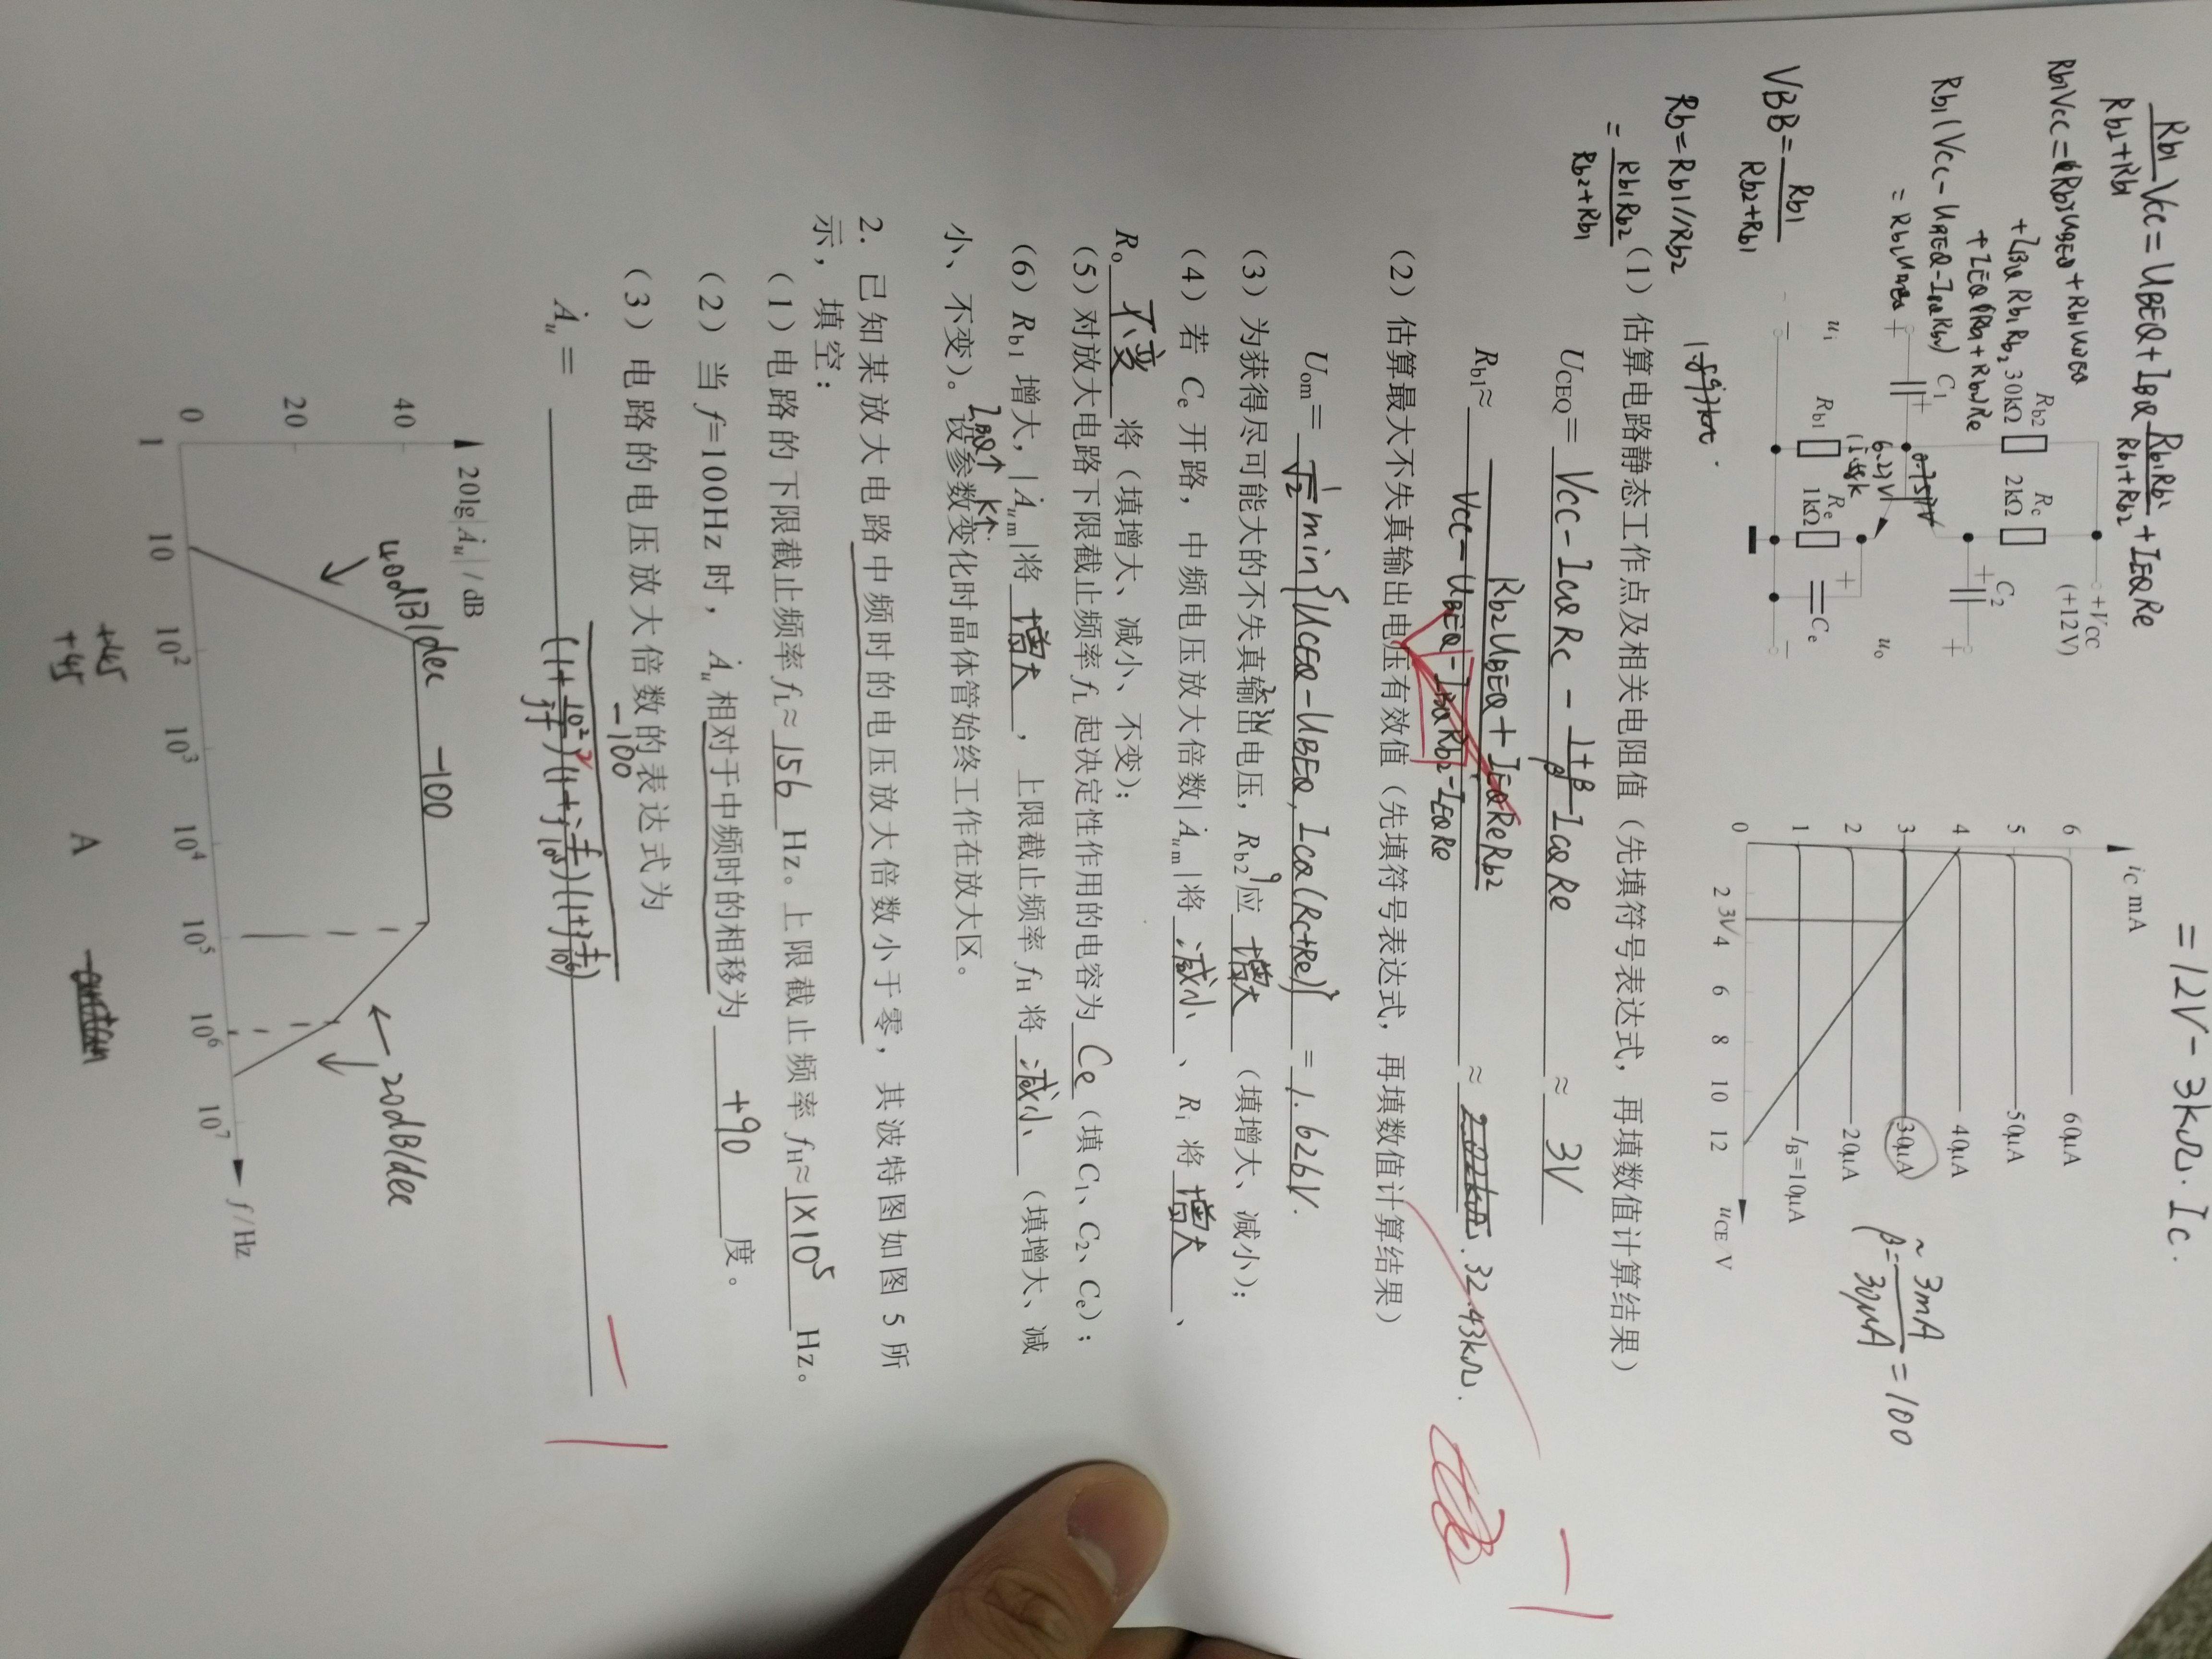 = 12V - 3kΩ · Ic .
Rb1/(Rb2+Rb1) Vcc = UBEQ + IBQ Rb1Rb2/(Rb1+Rb2) + IEQ Re
Rb1Vcc = Rb2UBEQ + Rb1UBEQ
+ IBQ Rb1 Rb2
+ IEQ (Rb1 + Rb2) Re
Rb1 (Vcc - UBEQ - IBQ Rb2)
= Rb2 UBEQ
+VCC
(+12V)
Rb2
30kΩ
Rc
2kΩ
C2
+
+
C1
+
+
6.27V
uo
ui
Rb1
Re
1kΩ
+
Ce
−
−
VBB = Rb1/(Rb2+Rb1)
Rb = Rb1//Rb2
= Rb1Rb2/(Rb2+Rb1)
iC mA
6 60μA
5 50μA
4 40μA
3 30μA
2 20μA
1 IB=10μA
0
2 3V 4 6 8 10 12 uCE V
β = 3mA/30μA = 100
(1) 估算电路静态工作点及相关电阻值(先填符号表达式,再填数值计算结果)
UCEQ= Vcc - ICQ Rc - (1+β)/β ICQ Re ≈ 3V
-1
Rb1≈ (Rb2 UBEQ + IEQ Re Rb2)/(Vcc - UBEQ - IBQ Rb2 - IEQ Re) ≈ 2.02kΩ . 32.43kΩ.
(2) 估算最大不失真输出电压有效值(先填符号表达式,再填数值计算结果)
Uom= 1/√2 min{UCEQ - UBEQ, ICQ (Rc+Re)} = 1.626V.
9
(3) 为获得尽可能大的不失真输出电压,Rb2应 增大 (填增大、减小);
(4) 若 Ce 开路,中频电压放大倍数|Ȧum|将 减小 、Ri 将 增大 、
Ro 不变 将(填增大、减小、不变);
(5) 对放大电路下限截止频率 fL 起决定性作用的电容为 Ce (填 C1、C2、Ce);
(6) Rb1 增大,|Ȧum|将 增大 ,上限截止频率 fH 将 减小 (填增大、减
IBQ↑ K↑
小、不变)。设参数变化时晶体管始终工作在放大区。
2. 已知某放大电路中频时的电压放大倍数小于零,其波特图如图 5 所
示,填空:
(1) 电路的下限截止频率 fL≈ 156 Hz。上限截止频率 fH≈ 1×10⁵ Hz。
(2) 当 f=100Hz 时,Ȧu 相对于中频时的相移为 +90 度。
(3) 电路的电压放大倍数的表达式为
Ȧu = -100/((1+10²/jf)²(1+j f/10⁵)(1+j f/10⁶))
-1
20lg|Ȧu| / dB
40dB/dec
-100
20dB/dec
40
20
0
f / Hz
1 10 10² 10³ 10⁴ 10⁵ 10⁶ 10⁷
+45
+45
A